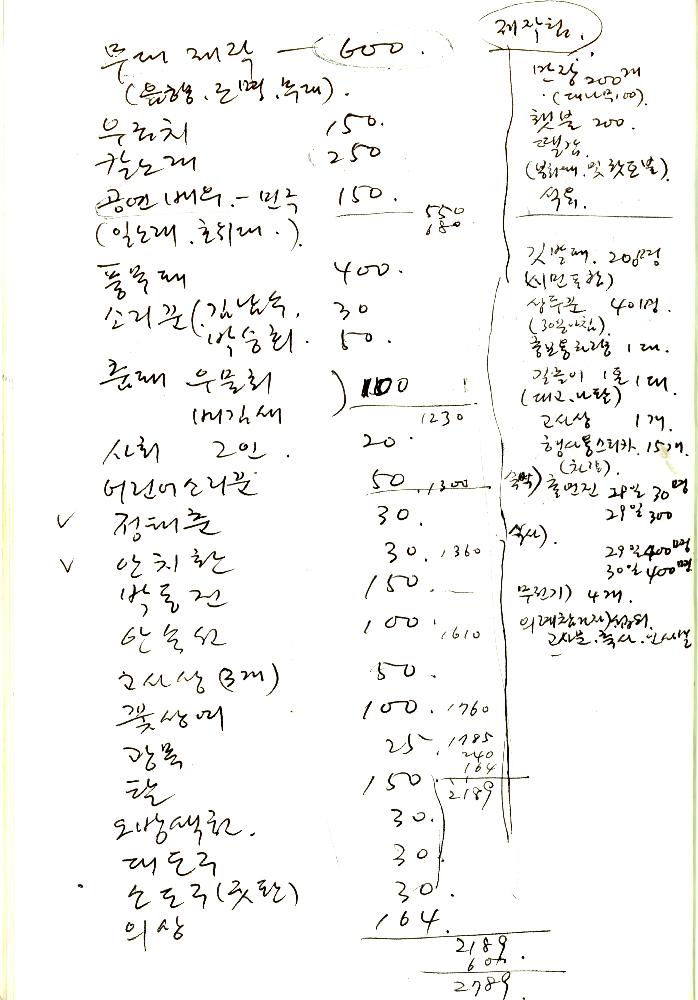 무대 제작 — 600.
(음향. 조명. 무대).
우리치 150.
칼노래 250
공연 배우 - 민극 150.
550
680
(일노래. 호위대.).
풍물대 400.
소리꾼(김남수. 30
박승희. 50.
춤패 우물회 ) 100
배김새
1230
사회 2인. 20.
어린이소리꾼 50. 1300
✓ 정태춘 30.
✓ 안치환 30. 1360
박동전 150.
안숙선 100. 1610
고사상 (3개) 50.
꽃상여 100. 1760
광목 25. 1785
240
164
탈 150
2189
오방색천. 30.
대도구 30.
소도구(굿판) 30.
의상 164.
2189
600.
2789.
제작팀.
만장 200개
(대나무, 00).
횃불 200.
땔감
(북하대. 및 횃도불).
석유.
깃발대. 200명
(시민포함)
상두꾼 40명.
(30일아침).
홍보용차량 1대.
길놀이 1호 1대.
(대고. 나팔)
고사상 1개.
행사용스티카. 15개.
(차량).
숙박) 출연진 28일 30명
29일 300
식사). 29일 400명
30일 400명
무전기) 4개.
고사문. 축사. 인사말